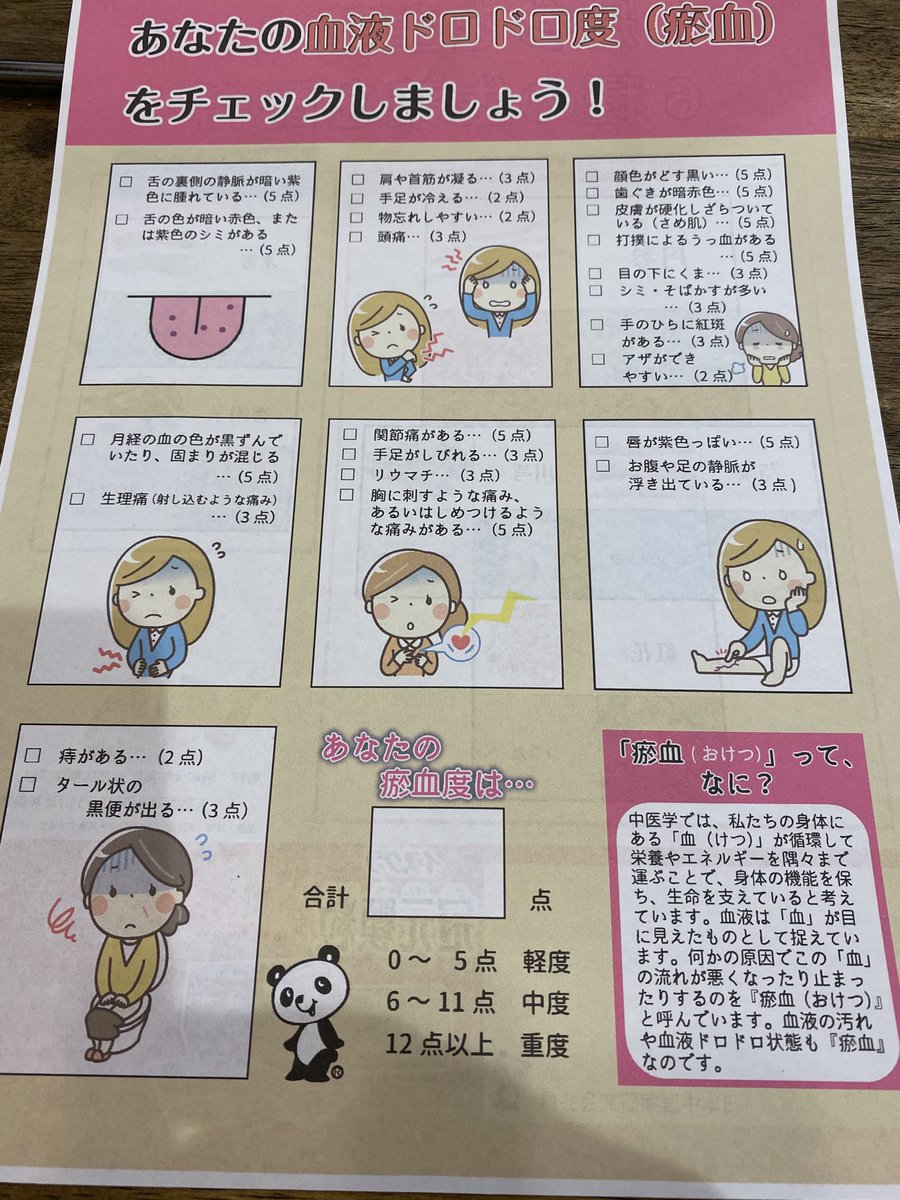 あなたの血液ドロドロ度（瘀血）
をチェックしましょう！
□ 舌の裏側の静脈が暗い紫
色に腫れている…（5点）
□ 舌の色が暗い赤色、また
は紫色のシミがある
…（5点）
□ 肩や首筋が凝る…（3点）
□ 手足が冷える…（2点）
□ 物忘れしやすい…（2点）
□ 頭痛…（3点）
□ 顔色がどす黒い…（5点）
□ 歯ぐきが暗赤色…（5点）
□ 皮膚が硬化しざらついて
いる（さめ肌）…（5点）
□ 打撲によるうっ血がある
…（5点）
□ 目の下にくま…（3点）
□ シミ・そばかすが多い
…（3点）
□ 手のひらに紅斑
がある…（3点）
□ アザができ
やすい…（2点）
□ 月経の血の色が黒ずんで
いたり、固まりが混じる
…（5点）
□ 生理痛（射し込むような痛み）
…（3点）
□ 関節痛がある…（5点）
□ 手足がしびれる…（3点）
□ リウマチ…（3点）
□ 胸に刺すような痛み、
あるいはしめつけるよう
な痛みがある…（5点）
□ 唇が紫色っぽい…（5点）
□ お腹や足の静脈が
浮き出ている…（3点）
□ 痔がある…（2点）
□ タール状の
黒便が出る…（3点）
あなたの
瘀血度は…
合計 点
0～ 5点 軽度
6～11点 中度
12点以上 重度
®
「瘀血（おけつ）」って、
なに？
中医学では、私たちの身体に
ある「血（けつ）」が循環して
栄養やエネルギーを隅々まで
運ぶことで、身体の機能を保
ち、生命を支えていると考え
ています。血液は「血」が目
に見えたものとして捉えてい
ます。何かの原因でこの「血」
の流れが悪くなったり止まっ
たりするのを『瘀血（おけつ）』
と呼んでいます。血液の汚れ
や血液ドロドロ状態も『瘀血』
なのです。